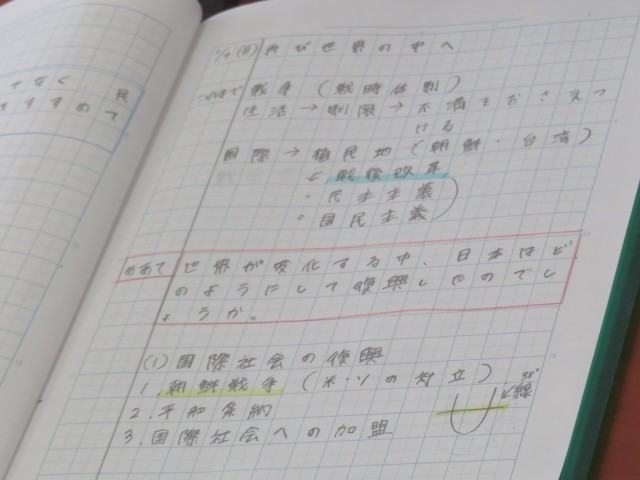 でなく、民
すすめて
再び世界の中へ
これまで 戦争(戦時体制)
生活→制限→不満をおさえつ
ける
国際→植民地(朝鮮・台湾)
戦後改革
・民主主義
・国民主義
めあて 世界が変化する中、日本はど
のようにして復興したのでし
ょうか。
(1)国際社会の復興
1.朝鮮戦争(米・ソの対立)
38°線
2.平和条約
3.国際社会への加盟